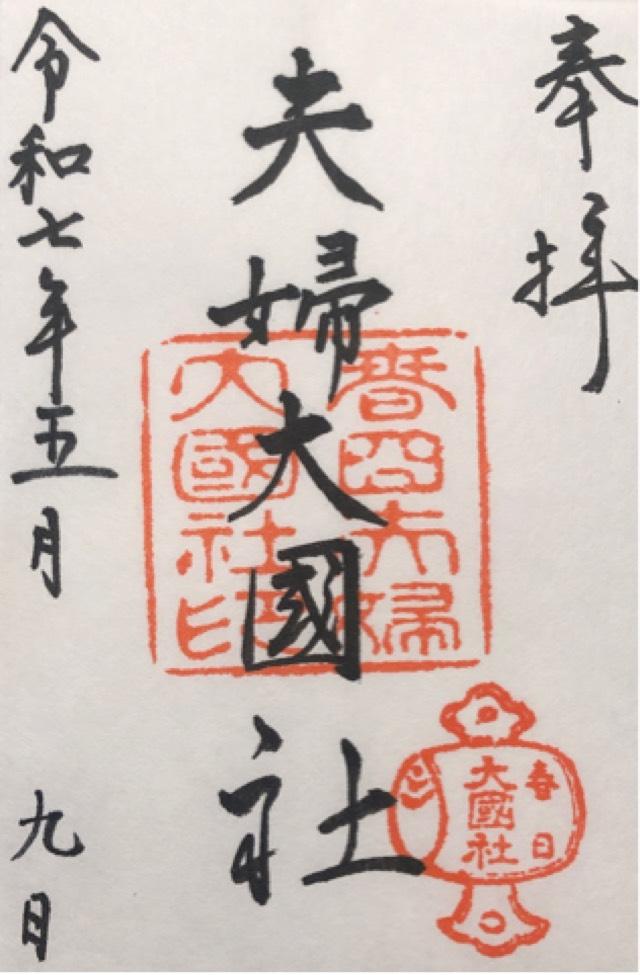 奉拝
夫婦大國社
春日夫婦
大國社印
春日
大國社
令和七年五月九日